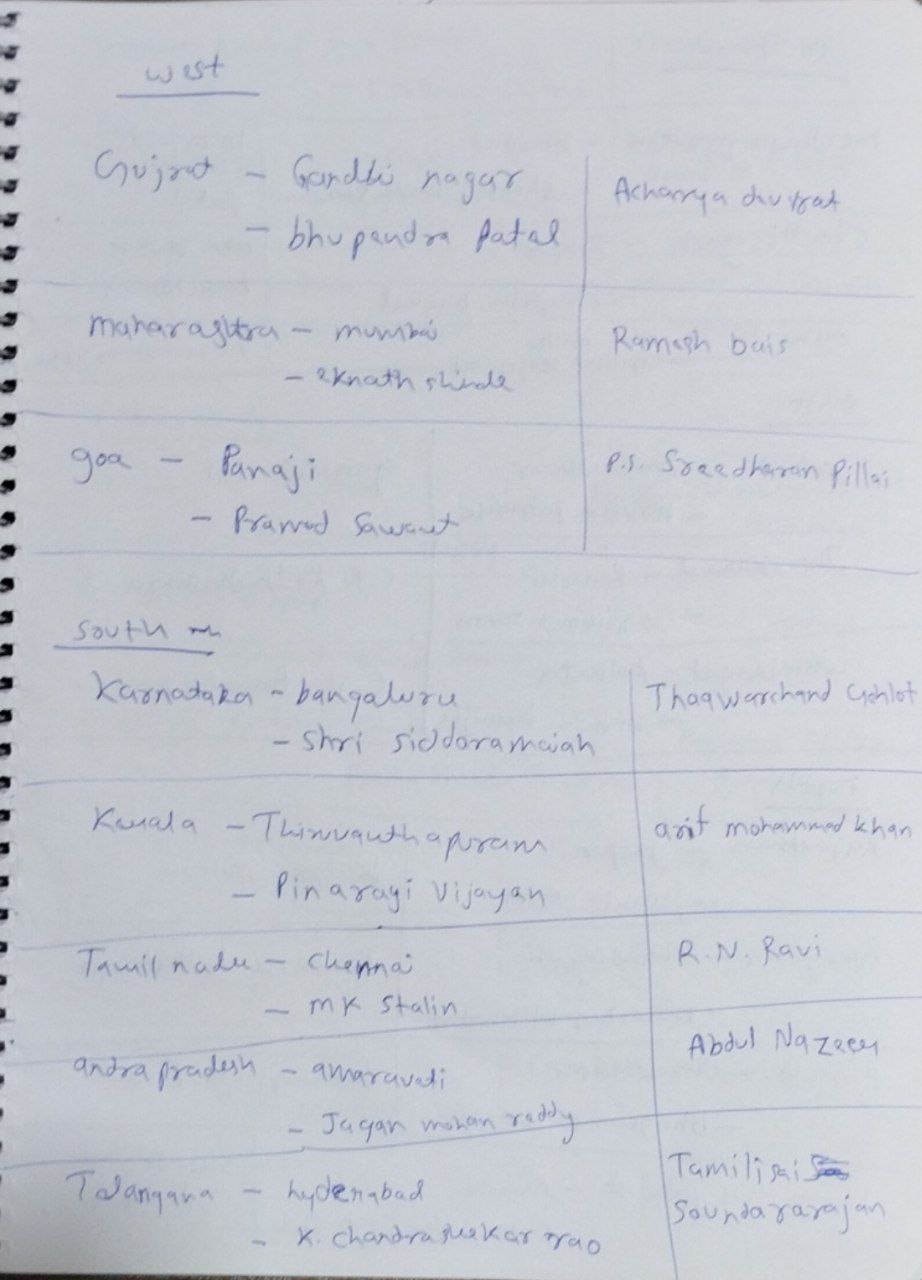 west
Gujrat - Gandhi nagar
- bhupendra Patel
Acharya devvrat
maharashtra - mumbai
- eknath shinde
Ramesh bais
goa - Panaji
- Pramod Sawant
P.S. Sreedharan Pillai
South
Karnataka - bangaluru
- Shri siddaramaiah
Thaawarchand Gehlot
Kerala - Thiruvanthapuram
- Pinarayi Vijayan
arif mohammed khan
Tamil nadu - chennai
- MK Stalin
R.N. Ravi
andra pradesh - amaravati
- Jagan mohan reddy
Abdul Nazeer
Telangana - hyderabad
- K. chandrashekar rao
Tamilisai
Soundararajan